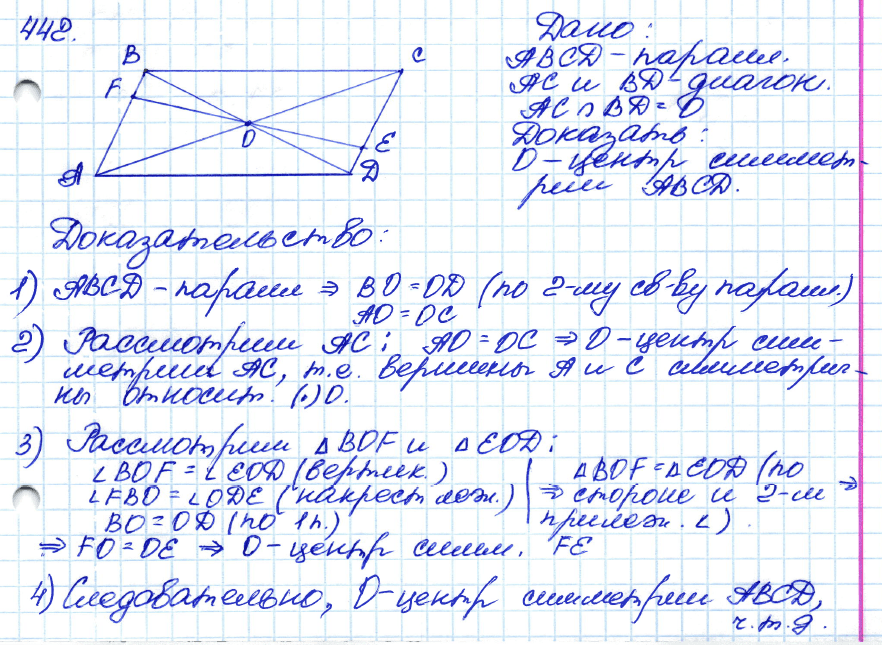 442.
B
C
F
O
E
A
D
Дано:
ABCD – паралл.
AC и BD – диагон.
AC ∩ BD = O
Доказать:
O – центр симмет-
рии ABCD.
Доказательство:
1) ABCD – паралл ⇒ BO = OD (по 2-му св-ву паралл.)
AO = OC
2) Рассмотрим AC: AO = OC ⇒ O – центр сим-
метрии AC, т.е. вершины A и C симметрич-
ны относит. (.) O.
3) Рассмотрим △BOF и △EOD:
∠BOF = ∠EOD (вертик.)
∠FBO = ∠ODE (накрест леж.)
BO = OD (по 1п.)
△BOF = △EOD (по
⇒ стороне и 2-м ⇒
прилеж. ∠).
⇒ FO = OE ⇒ O – центр симм. FE
4) Следовательно, O – центр симметрии ABCD,
ч.т.д.